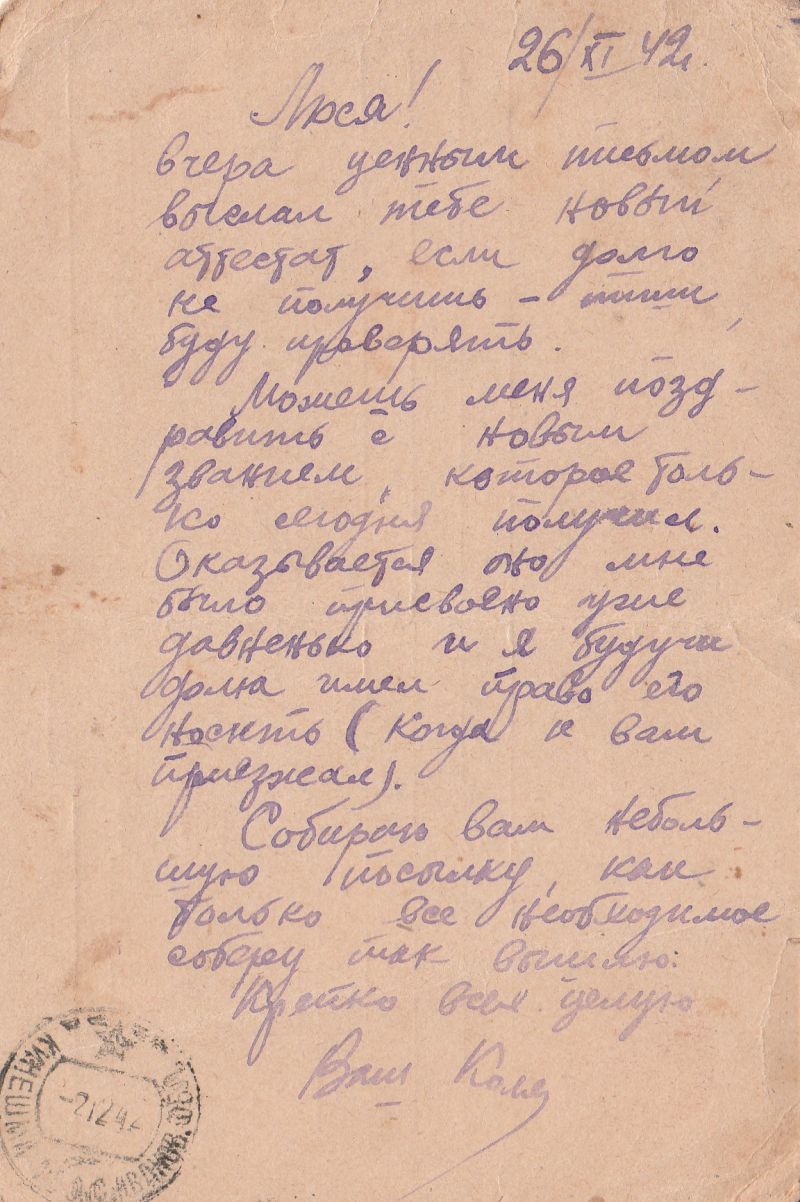 26/XI 42г.
Люся!
вчера ценным письмом
выслал тебе новый
аттестат, если долго
не получишь – пиши,
буду проверять.
Можешь меня позд-
равить с новым
званием, которое толь-
ко сегодня получил.
Оказывается оно мне
было присвоено уже
давненько и я будучи
дома имел право его
носить (когда к вам
приезжал).
Собираю вам неболь-
шую посылку, как
только все необходимое
соберу так вышлю.
Крепко всех целую
Ваш Коля
КИНЕШМА
-2 12 42